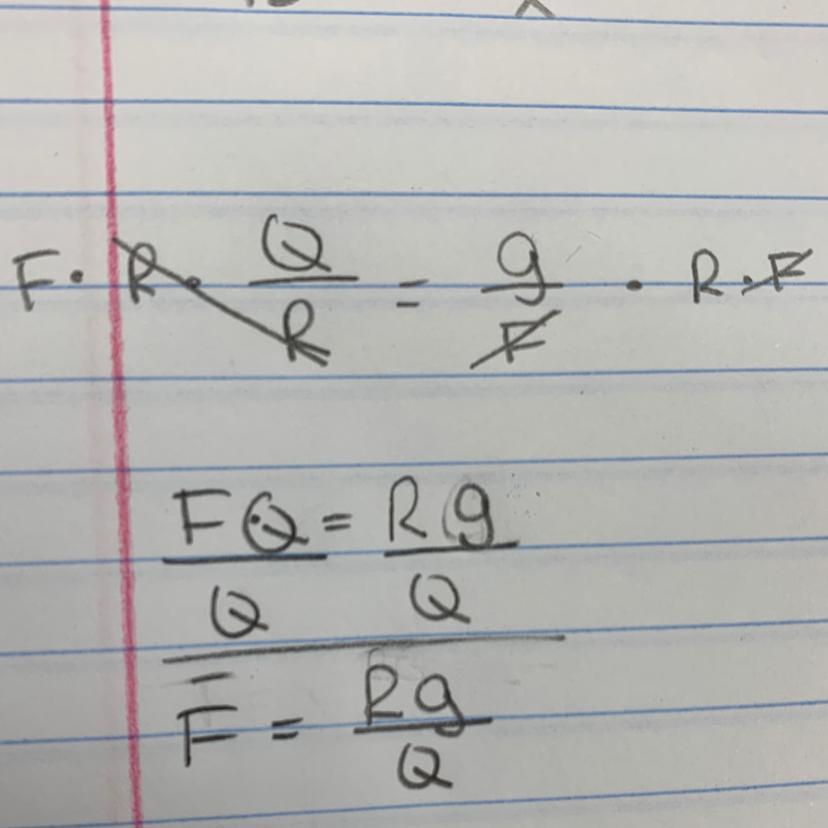 F · R · Q/R = g/F · R · F
FQ/Q = Rg/Q
F = Rg/Q